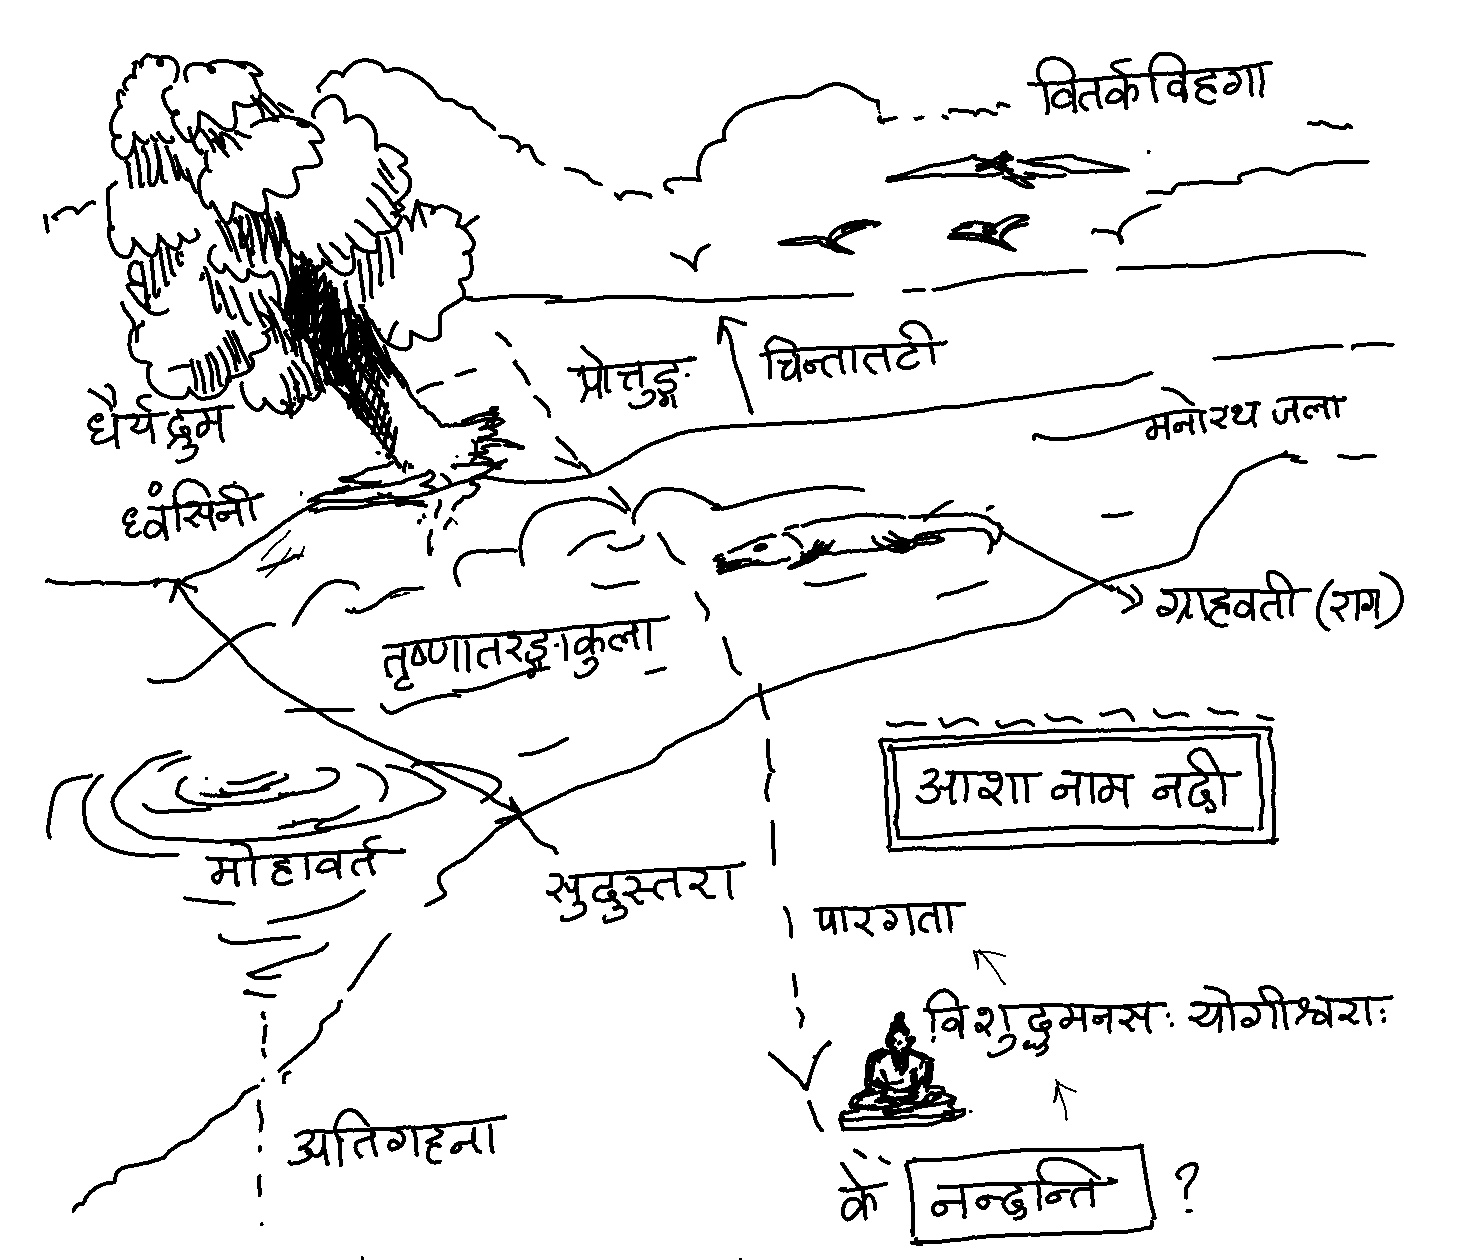 वितर्कविहगा
प्रोत्तुङ्ग चिन्तातटी
धैर्यद्रुम
मनोरथ जला
ध्वंसिनी
ग्राहवती (राग)
तृष्णातरङ्गाकुला
आशा नाम नदी
मोहावर्त
सुदुस्तरा
पारगता
विशुद्धमनसः योगीश्वराः
अतिगहना
के नन्दन्ति ?